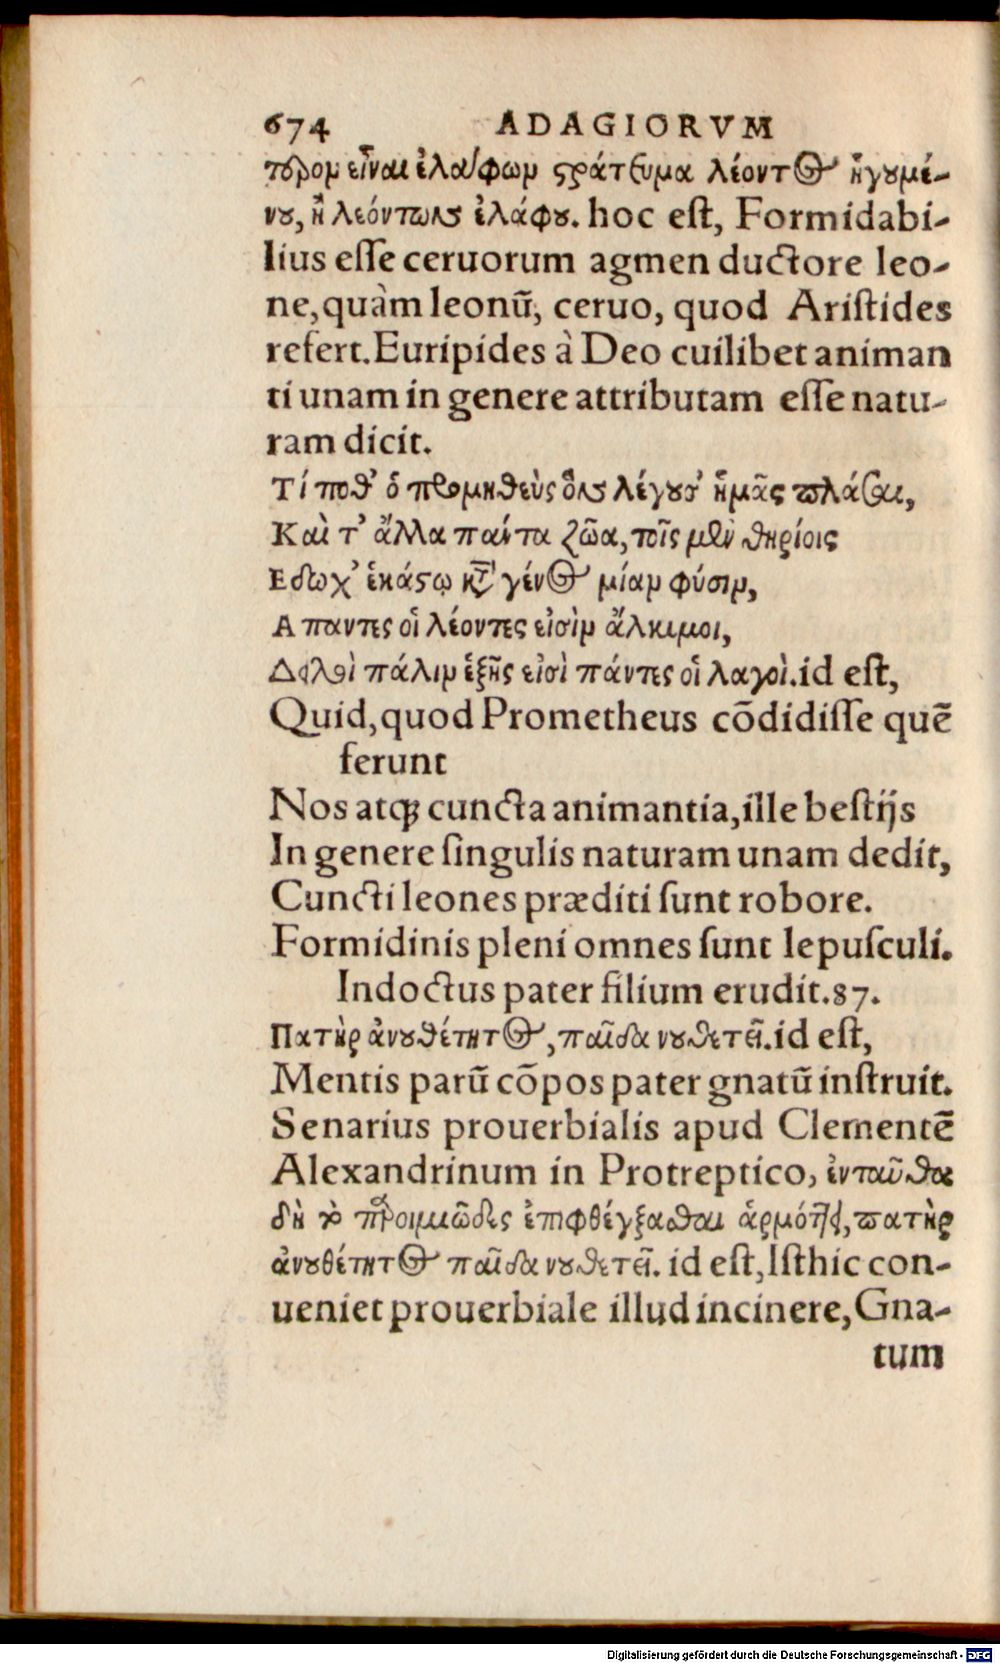 674 ADAGIORVM
τερομ εἶναι ἐλάφωμ στράτευμα λέοντος ἡγουμέ-
νου, ἢ λεόντων ἐλάφου. hoc eſt, Formidabi-
lius eſſe ceruorum agmen ductore leo-
ne, quàm leonũ, ceruo, quod Ariſtides
refert. Euripides à Deo cuilibet animan
ti unam in genere attributam eſſe natu-
ram dicit.
Τί ποθ' ὁ προμηθεὺς ὃν λέγουσ' ἡμᾶς πλάσαι,
Καὶ τ' ἄλλα πάντα ζῶα, τοῖς μὲν θηρίοις
Εδωχ' ἑκάστῳ κατὰ γένος μίαμ φύσιμ,
Απαντες οἱ λέοντες εἰσὶμ ἄλκιμοι,
Δειλοὶ πάλιμ ἑξῆς εἰσὶ πάντες οἱ λαγοὶ. id eſt,
Quid, quod Prometheus cõdidiſſe quẽ
ferunt
Nos atqꝫ cuncta animantia, ille beſtijs
In genere ſingulis naturam unam dedit,
Cuncti leones præditi ſunt robore.
Formidinis pleni omnes ſunt lepuſculi.
Indoctus pater filium erudit. 87.
Πατὴρ ἀνουθέτητος, παῖδα νουθετεῖ. id eſt,
Mentis parũ cõpos pater gnatũ inſtruit.
Senarius prouerbialis apud Clementẽ
Alexandrinum in Protreptico, ἐνταῦθα
δὴ τὸ παροιμιῶδες ἐπιφθέγξασθαι ἁρμόττει, πατὴρ
ἀνουθέτητος παῖδα νουθετεῖ. id eſt, Iſthic con-
ueniet prouerbiale illud incinere, Gna-
tum
Digitalisierung gefördert durch die Deutsche Forschungsgemeinschaft - DFG